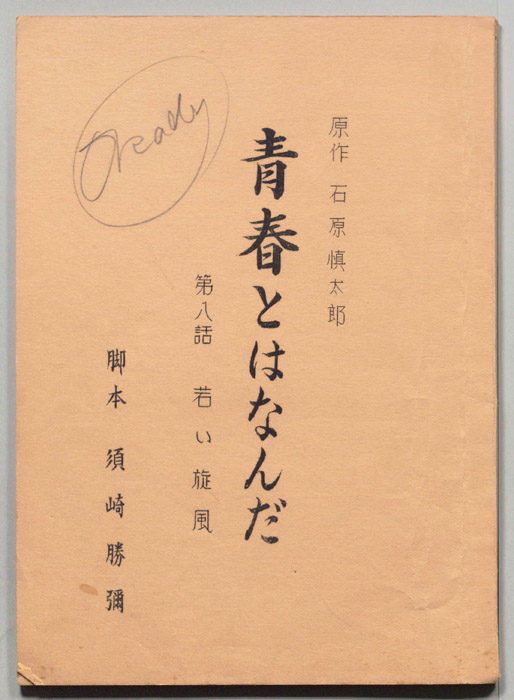 原作 石原慎太郎
青春とはなんだ
第八話 若い旋風
脚本 須崎勝彌